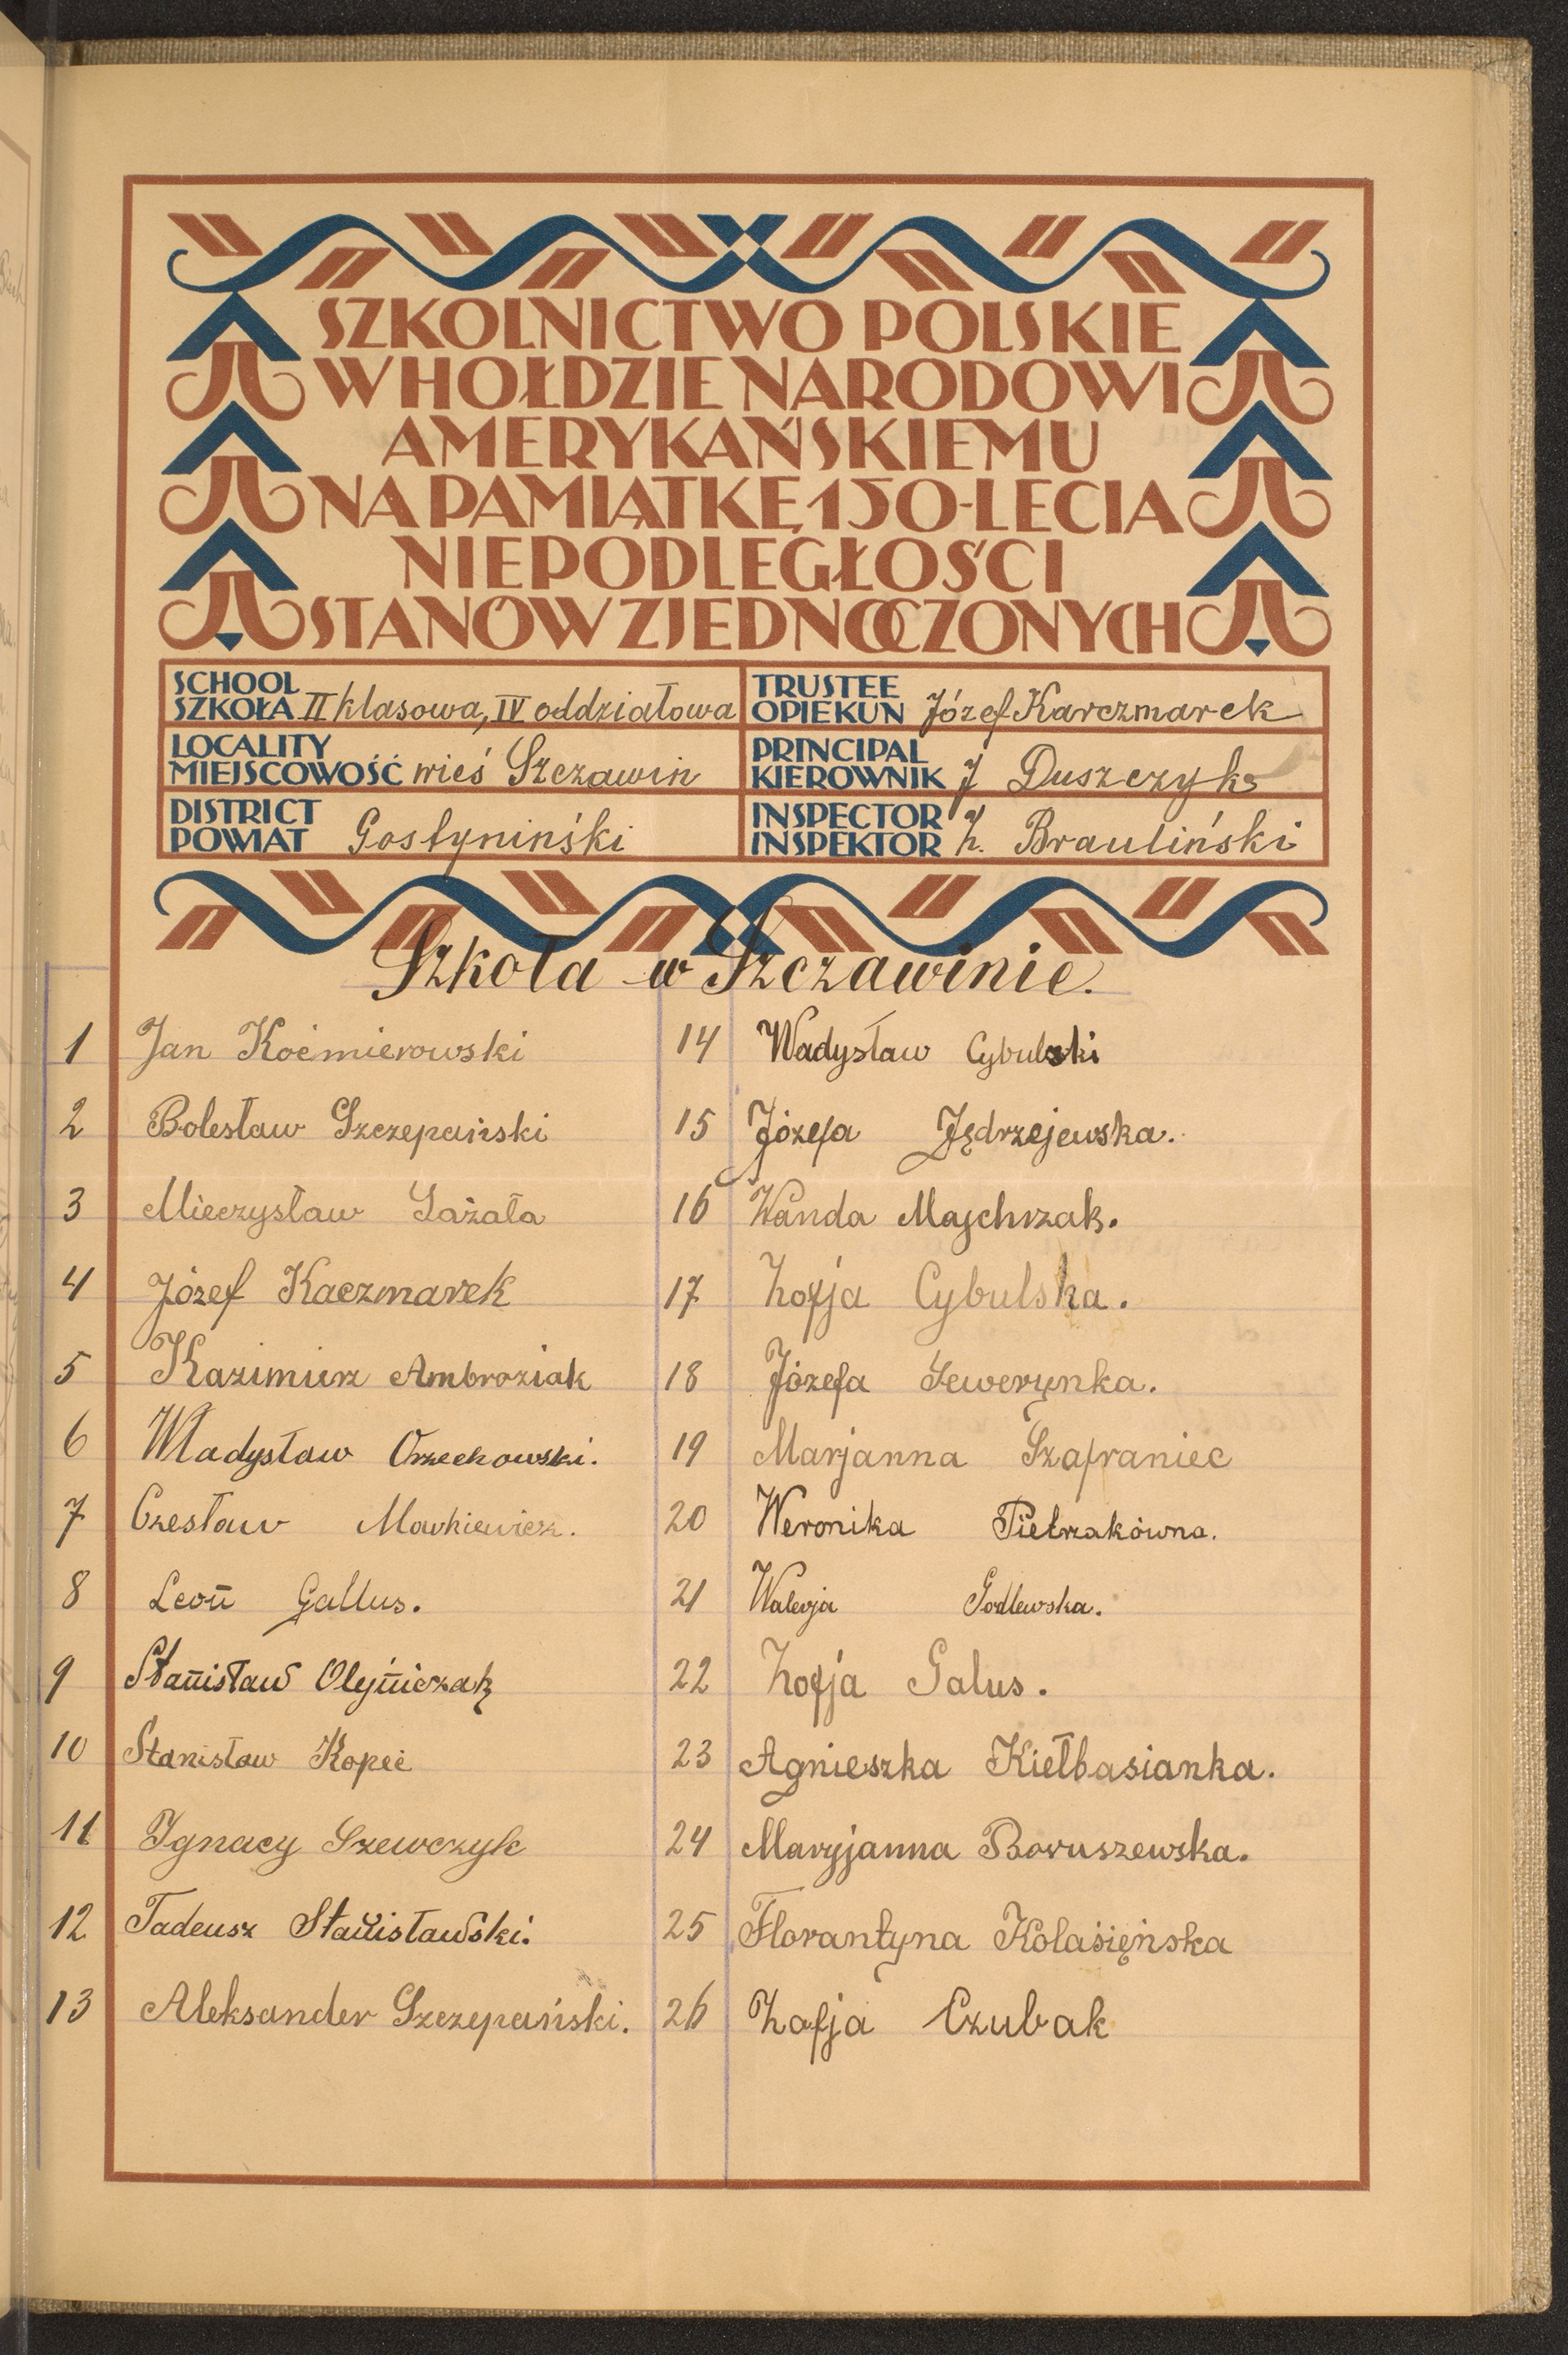 SZKOLNICTWO POLSKIE
W HOŁDZIE NARODOWI
AMERYKAŃSKIEMU
NA PAMIĄTKĘ 150-LECIA
NIEPODLEGŁOŚCI
STANÓW ZJEDNOCZONYCH
SCHOOL
SZKOŁA II klasowa, IV oddziałowa
TRUSTEE
OPIEKUN Józef Karczmarek
LOCALITY
MIEJSCOWOŚĆ wieś Szczawin
PRINCIPAL
KIEROWNIK J Duszczyk
DISTRICT
POWIAT Gostyniński
INSPECTOR
INSPEKTOR Brauliński
Szkoła w Szczawinie.
1 Jan Koćmierowski
2 Bolesław Szczepański
3 Mieczysław Sażała
4 Józef Kaczmarek
5 Kazimierz Ambroziak
6 Władysław Orzechowski.
7 Czesław Markiewicz.
8 Leon Gallus.
9 Stanisław Olejniczak
10 Stanisław Kopeć
11 Ignacy Szewczyk
12 Tadeusz Stanisławski.
13 Aleksander Szczepański.
14 Wadysław Cybulski
15 Józefa Jędrzejewska.
16 Wanda Majchrzak.
17 Zofja Cybulska.
18 Józefa Sewerynka.
19 Marjanna Szafraniec
20 Weronika Pietrzakówna.
21 Walerja Godlewska.
22 Zofja Galus.
23 Agnieszka Kiełbasianka.
24 Maryjanna Boruszewska.
25 Florantyna Kolasięńska
26 Zofja Czubak